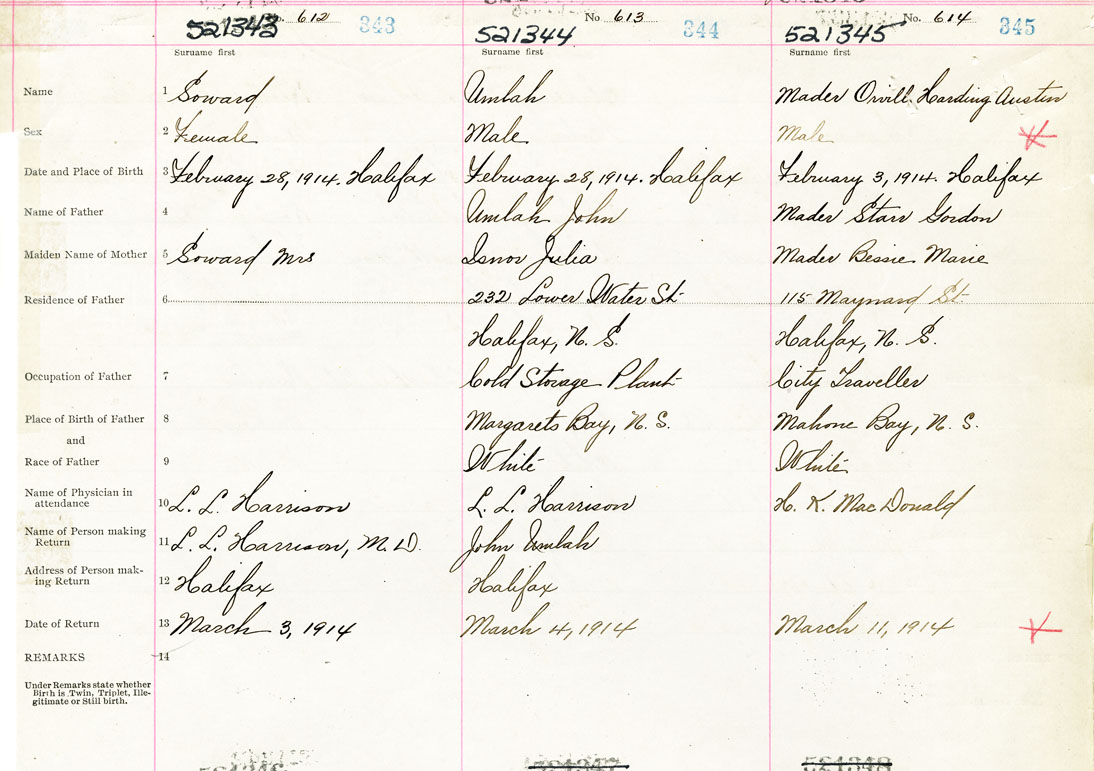 No. 612 343 No 613 344 No. 614 345
521343 521344 521345
Surname first Surname first Surname first
Name 1 Soward Umlah Mader Orvill Harding Austin
Sex 2 Female Male Male
Date and Place of Birth 3 February 28, 1914. Halifax February 28, 1914. Halifax February 3, 1914. Halifax
Name of Father 4 Umlah John Mader Starr Gordon
Maiden Name of Mother 5 Soward Mrs Isnor Julia Mader Bessie Marie
Residence of Father 6 232 Lower Water St. 115 Maynard St.
Halifax, N. S. Halifax, N. S.
Occupation of Father 7 Cold Storage Plant City Traveller
Place of Birth of Father 8 Margarets Bay, N. S. Mahone Bay, N. S.
and
Race of Father 9 White White
Name of Physician in
attendance 10 L. L. Harrison L. L. Harrison H. K. MacDonald
Name of Person making
Return 11 L. L. Harrison, M. D. John Umlah
Address of Person mak-
ing Return 12 Halifax Halifax
Date of Return 13 March 3, 1914 March 4, 1914 March 11, 1914
REMARKS 14
Under Remarks state whether
Birth is Twin, Triplet, Ille-
gitimate or Still birth.
521347 521348